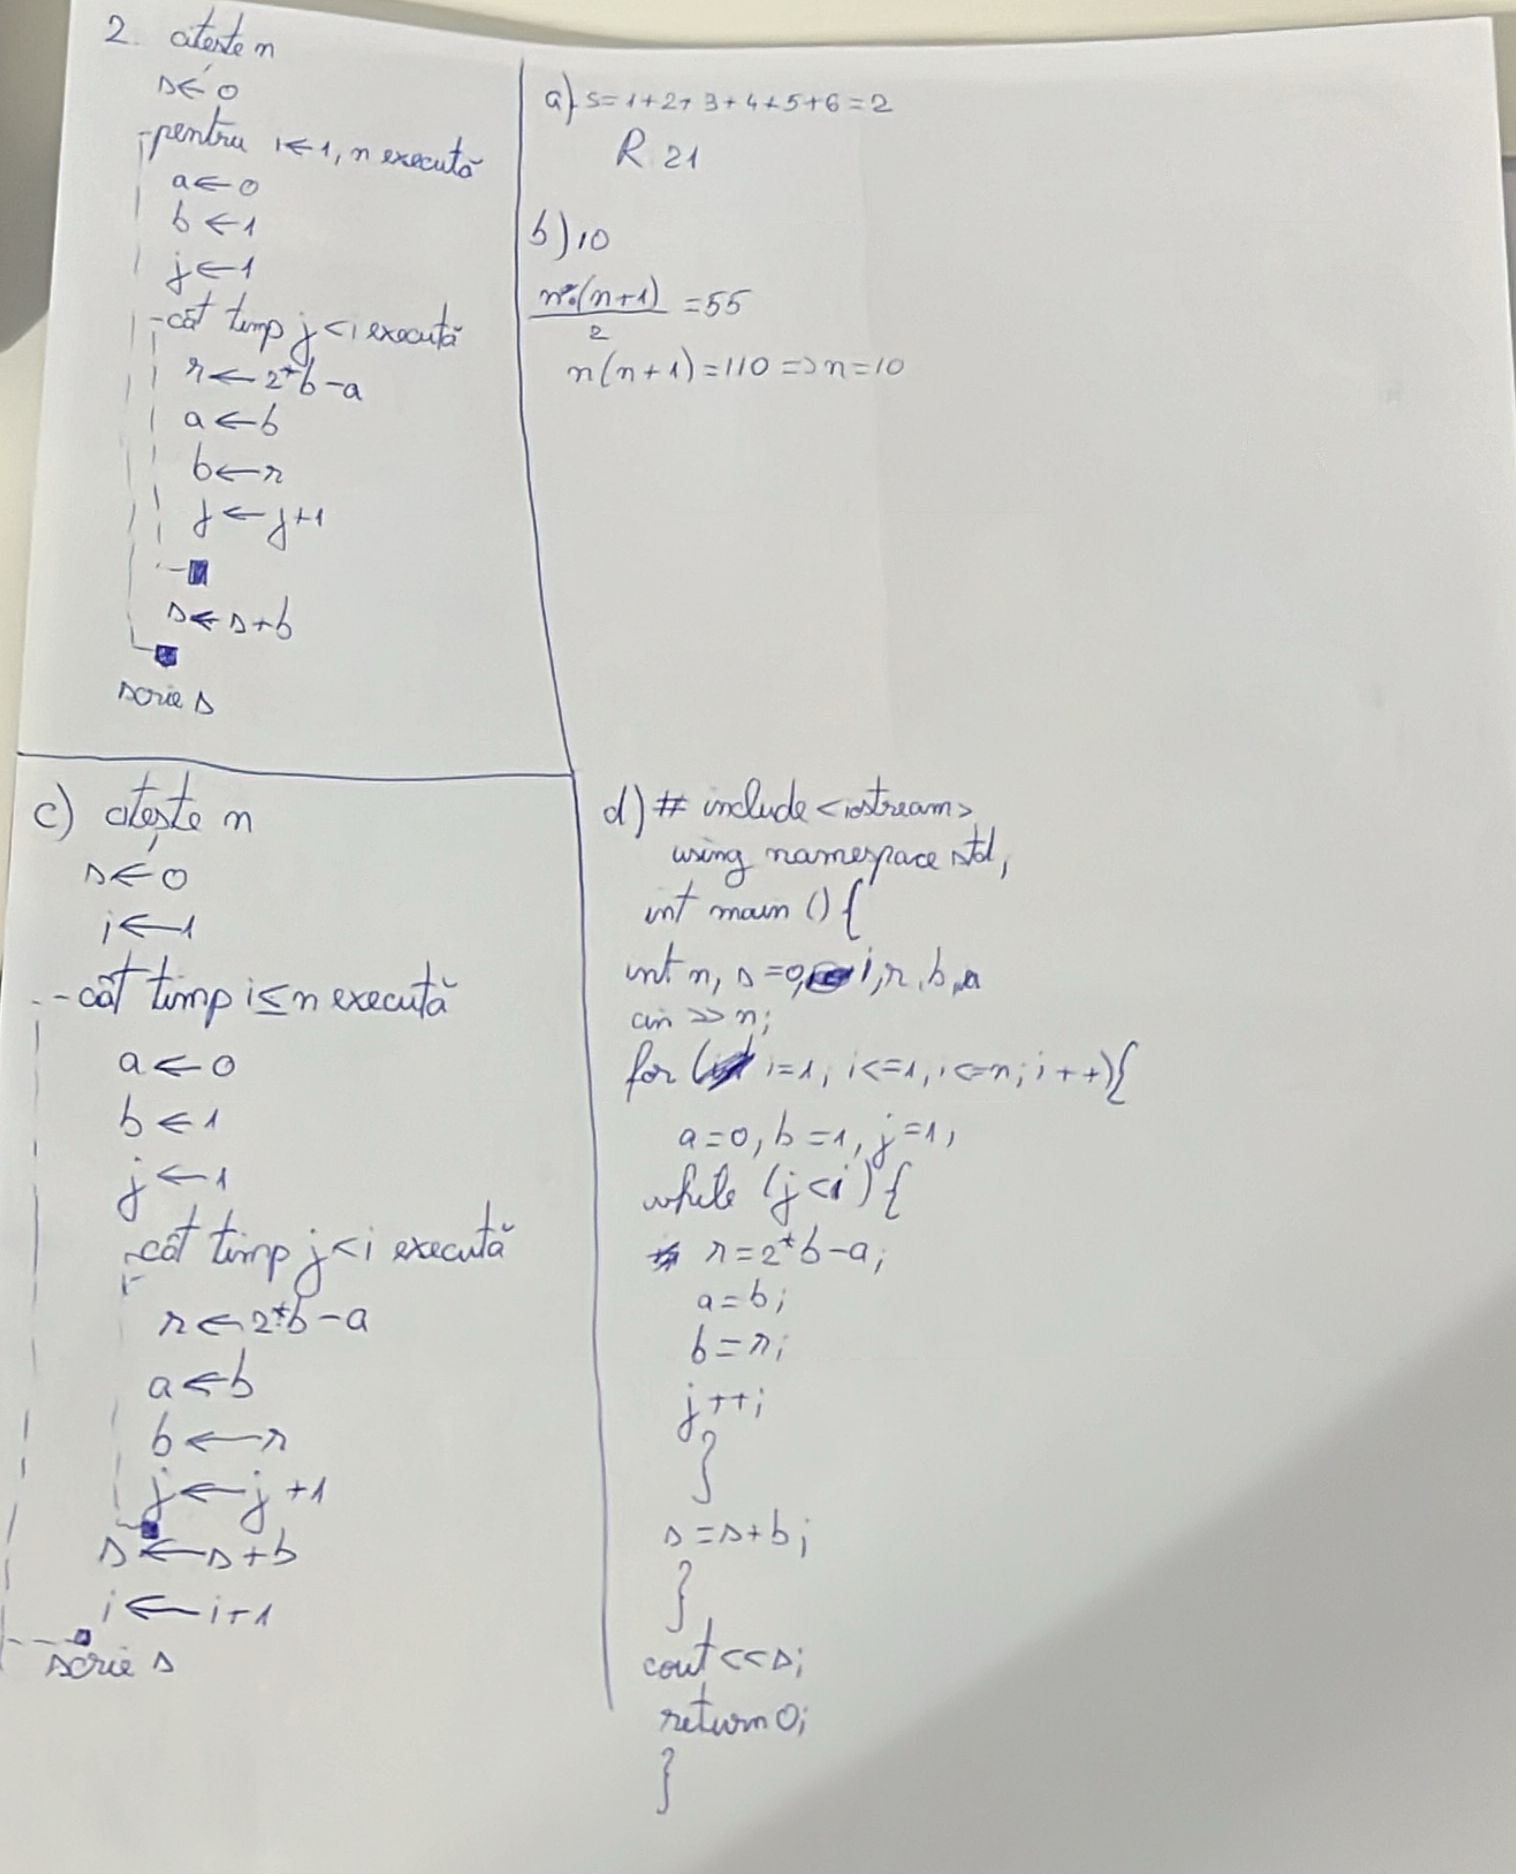 2. citește n
s←0
pentru i←1, n execută
a←0
b←1
j←1
cât timp j<i execută
r←2*b-a
a←b
b←r
j←j+1
s←s+b
scrie s
a) s=1+2+3+4+5+6=2
R. 21
b) 10
n·(n+1)/2 =55
n(n+1)=110 => n=10
c) citește n
s←0
i←1
cât timp i≤n execută
a←0
b←1
j←1
cât timp j<i execută
r←2*b-a
a←b
b←r
j←j+1
s←s+b
i←i+1
scrie s
d) # include <iostream>
using namespace std;
int main () {
int n, s=0, i, r, b, a
cin >> n;
for (i=1; i<=1, i<=n; i++){
a=0, b=1, j=1;
while (j<i) {
r=2*b-a;
a=b;
b=r;
j++;
}
s=s+b;
}
cout<<s;
return 0;
}